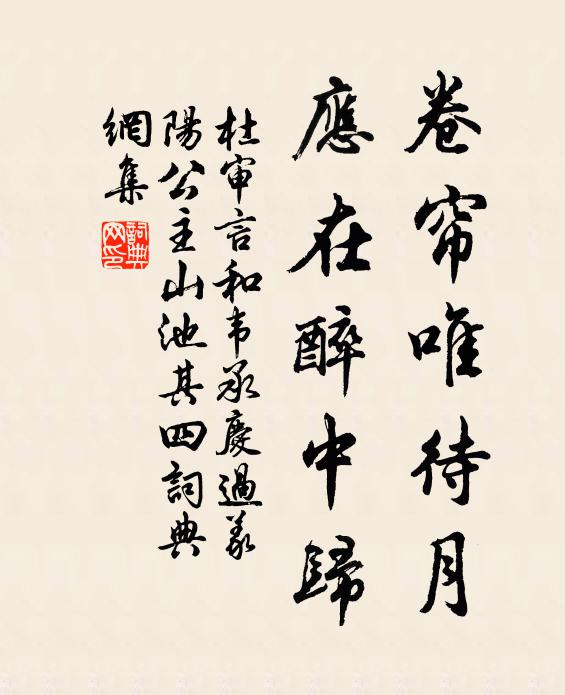 卷帘唯待月
應在醉中歸
杜审言和韦承慶過義
陽公主山池其四詞典
網集
詞典网印